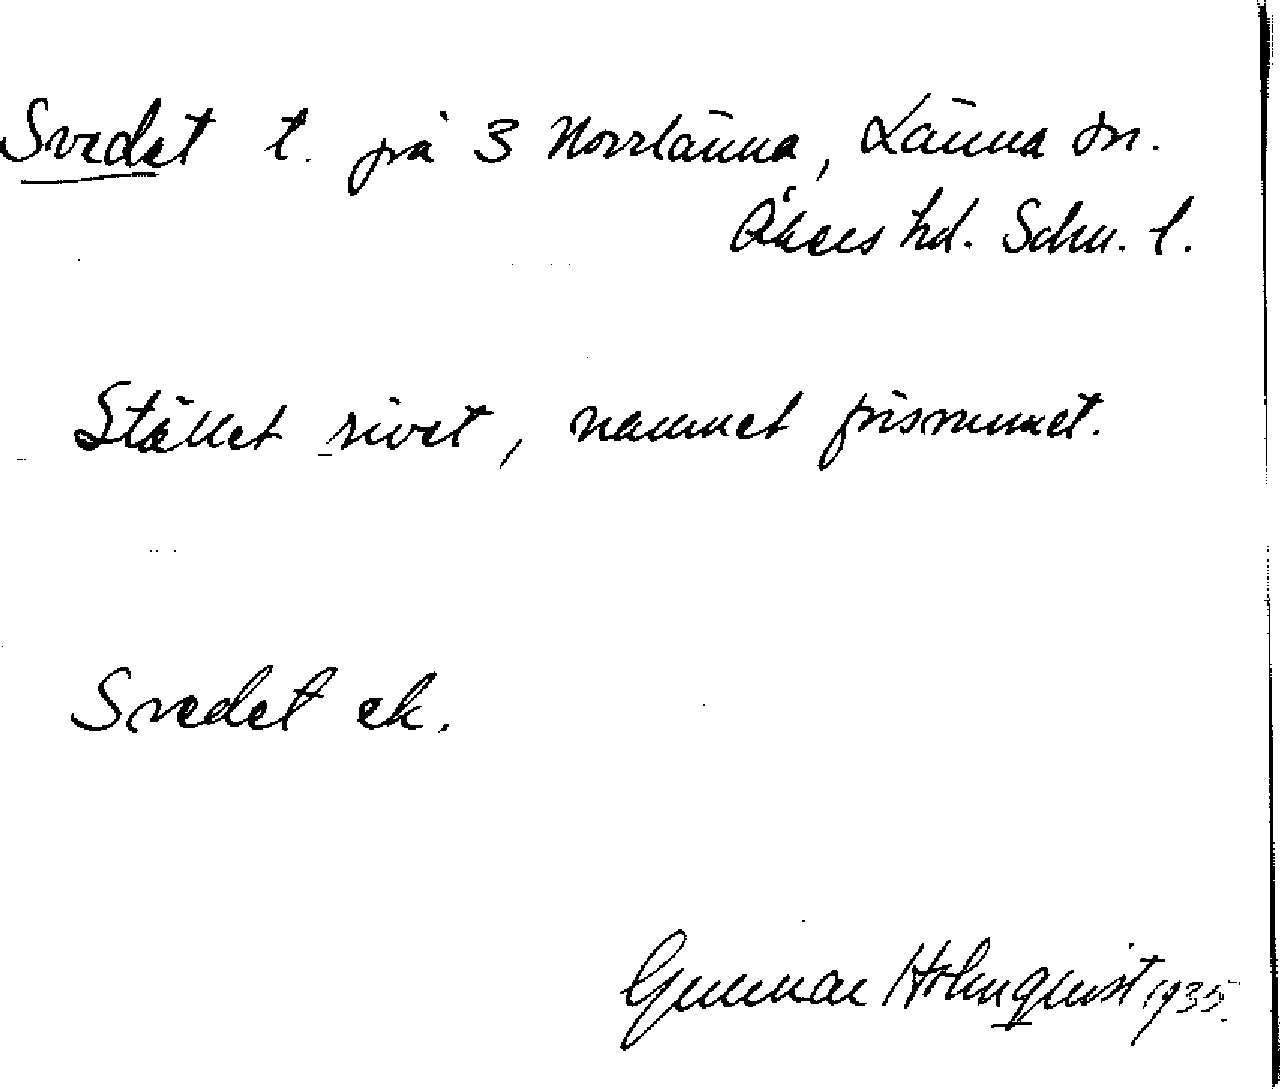 Svedet t. på 3 Norrlänna, Länna sn.
Åkers hd. Sdm. l.
Stället rivet, namnet försvunnet.
Svedet ek.
Gunnar Holmquist 1935.